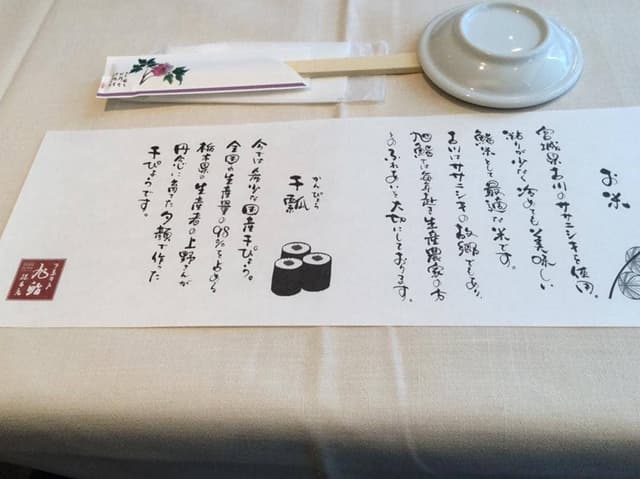 お米
宮城県古川のササニシキを使用。
粘りが少なく冷めても美味しい
鮨米として最適な米です。
古川はササニシキの故郷でもあり、
旭鮨では毎年社を生産農家の方
とのふれあいを大切にしております。
かんぴょう
干瓢
今では希少な国産干ぴょう。
全国の生産量の98%を占める
栃木県の生産者の上野さんが
丹念に育てた夕顔で作った
干ぴょうです。
旭鮨
総本店